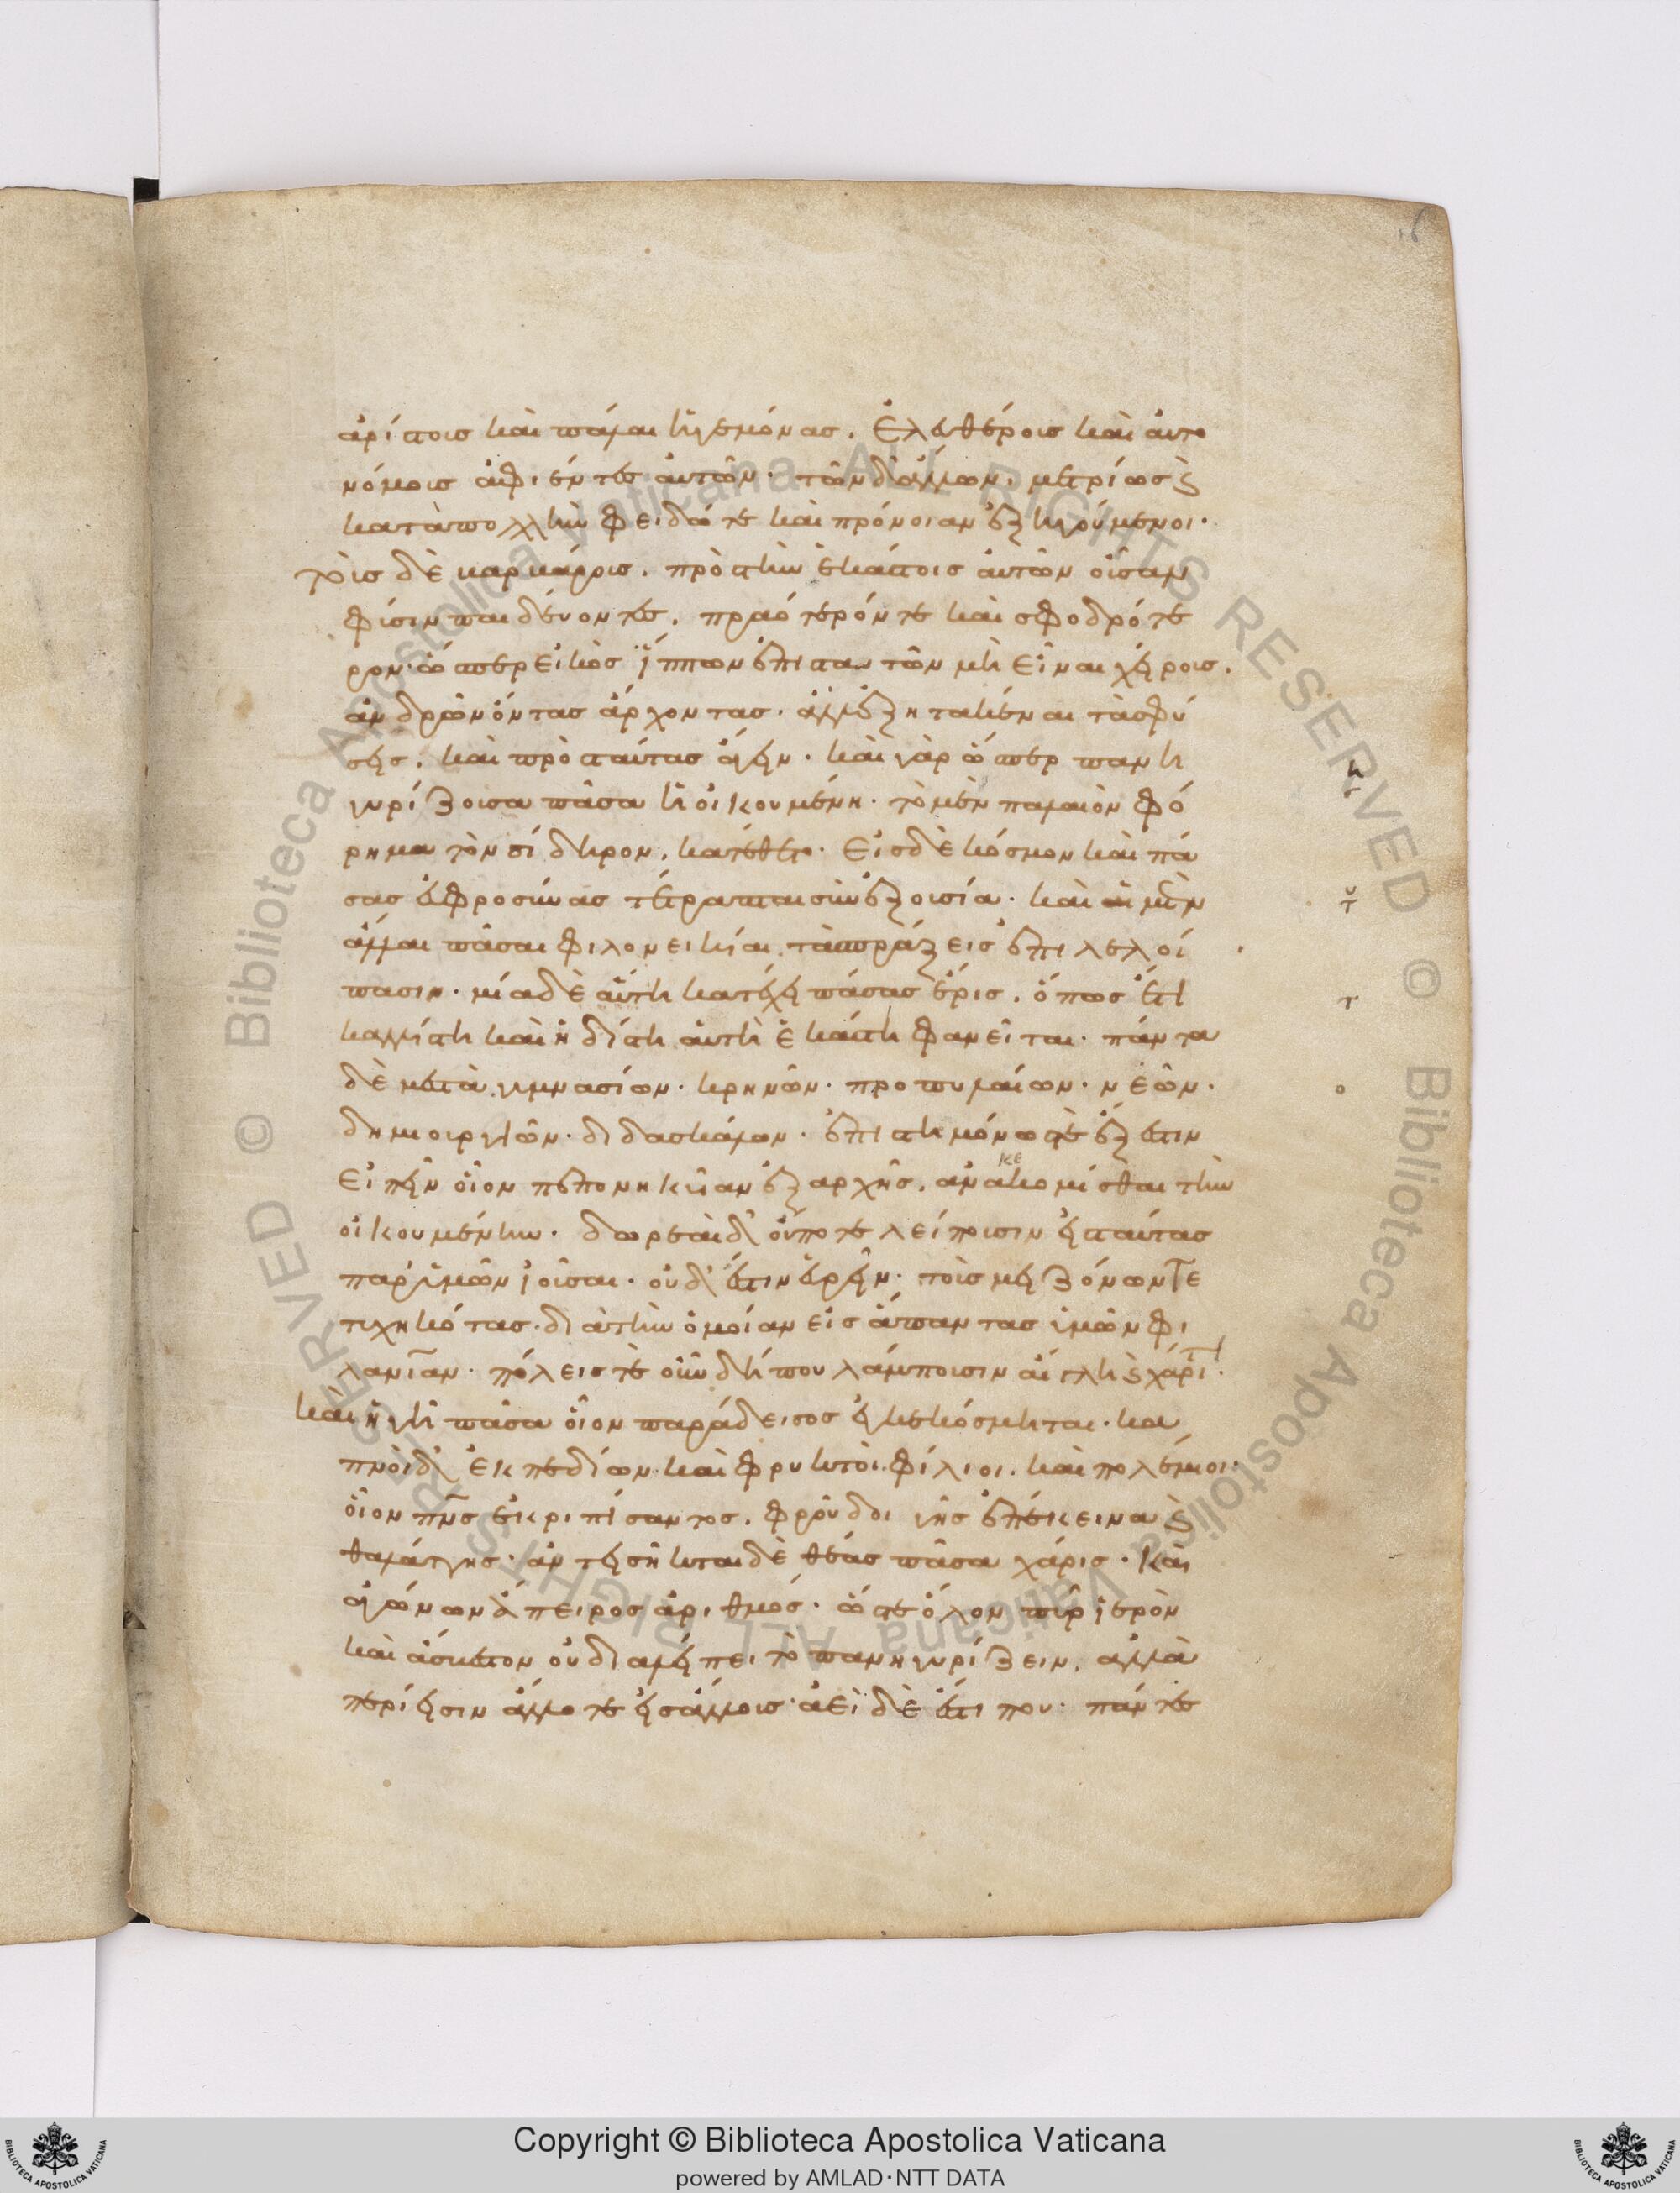 16
ἀρίστοις καὶ πάλαι ἡγεμόνας. ἐλευθέροις καὶ αὐτο
νόμοις ἀφιέντες αὐτῶν· τῶν δ' ἄλλων, μετρίως ϛ
κατὰ πολλὴν φειδώ τε καὶ πρόνοιαν ἐξηγούμενοι·
τοὺς δὲ βαρβάρους. πρὸς τὴν ἑκάστοις αὐτῶν οὖσαν
φύσιν παιδεύοντες, πραότερόν τε καὶ σφοδρότε
ρον· ὥσπερ εἰκὸς ἵππων ἐπιστατῶν μὴ εἶναι χείρους.
ἀνδρῶν ὄντας ἄρχοντας. ἀλλ' ἐξητακέναι τὰς φύ
σεις, καὶ πρὸς ταύτας ἄγειν· καὶ γὰρ ὥσπερ πανη
γυρίζουσα πᾶσα ἡ οἰκουμένη· τὸ μὲν παλαιὸν φό
ρημα τὸν σίδηρον, κατέθετο· εἰς δὲ κόσμον καὶ πά
σας εὐφροσύνας τέτραπται σὺν ἐξουσίᾳ· καὶ αἱ μὲν
ἄλλαι πᾶσαι φιλονεικίαι τὰς πράξεις ἐπιλελοί
πασιν· μία δὲ αὕτη κατέχει πάσας ἔρις, ὅπως ὅτι
καλλίστη καὶ ἡδίστη αὐτὴ ἑκάστη φανεῖται· πάντα
δὲ μεστὰ γυμνασίων· κρηνῶν· προπυλαίων· νεῶν·
δημιουργιῶν· διδασκάλων· ἐπιστημόνως τε ἔξεστιν
εἰπεῖν οἷον πεπονηκυῖαν ἐξ αρχῆς, ἀνακεκομίσθαι τὴν
οἰκουμένην· δωρεαὶ δ' οὔποτε λείπουσιν εἰς ταύτας
παρ' ὑμῶν ἰοῦσαι· οὐδ' ἔστιν εὑρεῖν τοὺς μειζόνων τε
τυχηκότας· διὰ τὴν ὁμοίαν εἰς ἅπαντας ὑμῶν φι
λανίαν· πόλεις τε οὖν δήπου λάμπουσιν αἴγλῃ ϛ χάριτι·
καὶ ἡ γῆ πᾶσα οἷον παράδεισος ἐγκεκόσμηται· κα
πνοὶ δ' ἐκ πεδίων καὶ φρυκτοὶ φίλιοι. καὶ πολέμιοι·
οἷον πνς ἐκριπίσαντος, φροῦδοι γῆς ἐπέκεινα ϛ
θαλάττης· ἀντεισῆκται δὲ θέας πᾶσα χάρις· Καὶ
ἀγώνων ἄπειρος ἀριθμός· ὥστε ὅλον πῦρ ἱερὸν
καὶ ἄσβεστον οὐ διαλείπει τὸ πανηγυρίζειν, αλλὰ
περίεισιν ἄλλοτε εἰς ἄλλους· ἀεὶ δὲ ἔστι που· πάντες